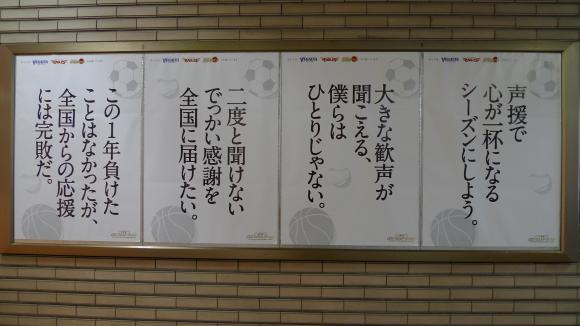 声援で
心が一杯になる
シーズンにしよう。
大きな歓声が
聞こえる、
僕らは
ひとりじゃない。
二度と聞けない
でっかい感謝を
全国に届けたい。
この1年負けた
ことはなかったが、
全国からの応援
には完敗だ。